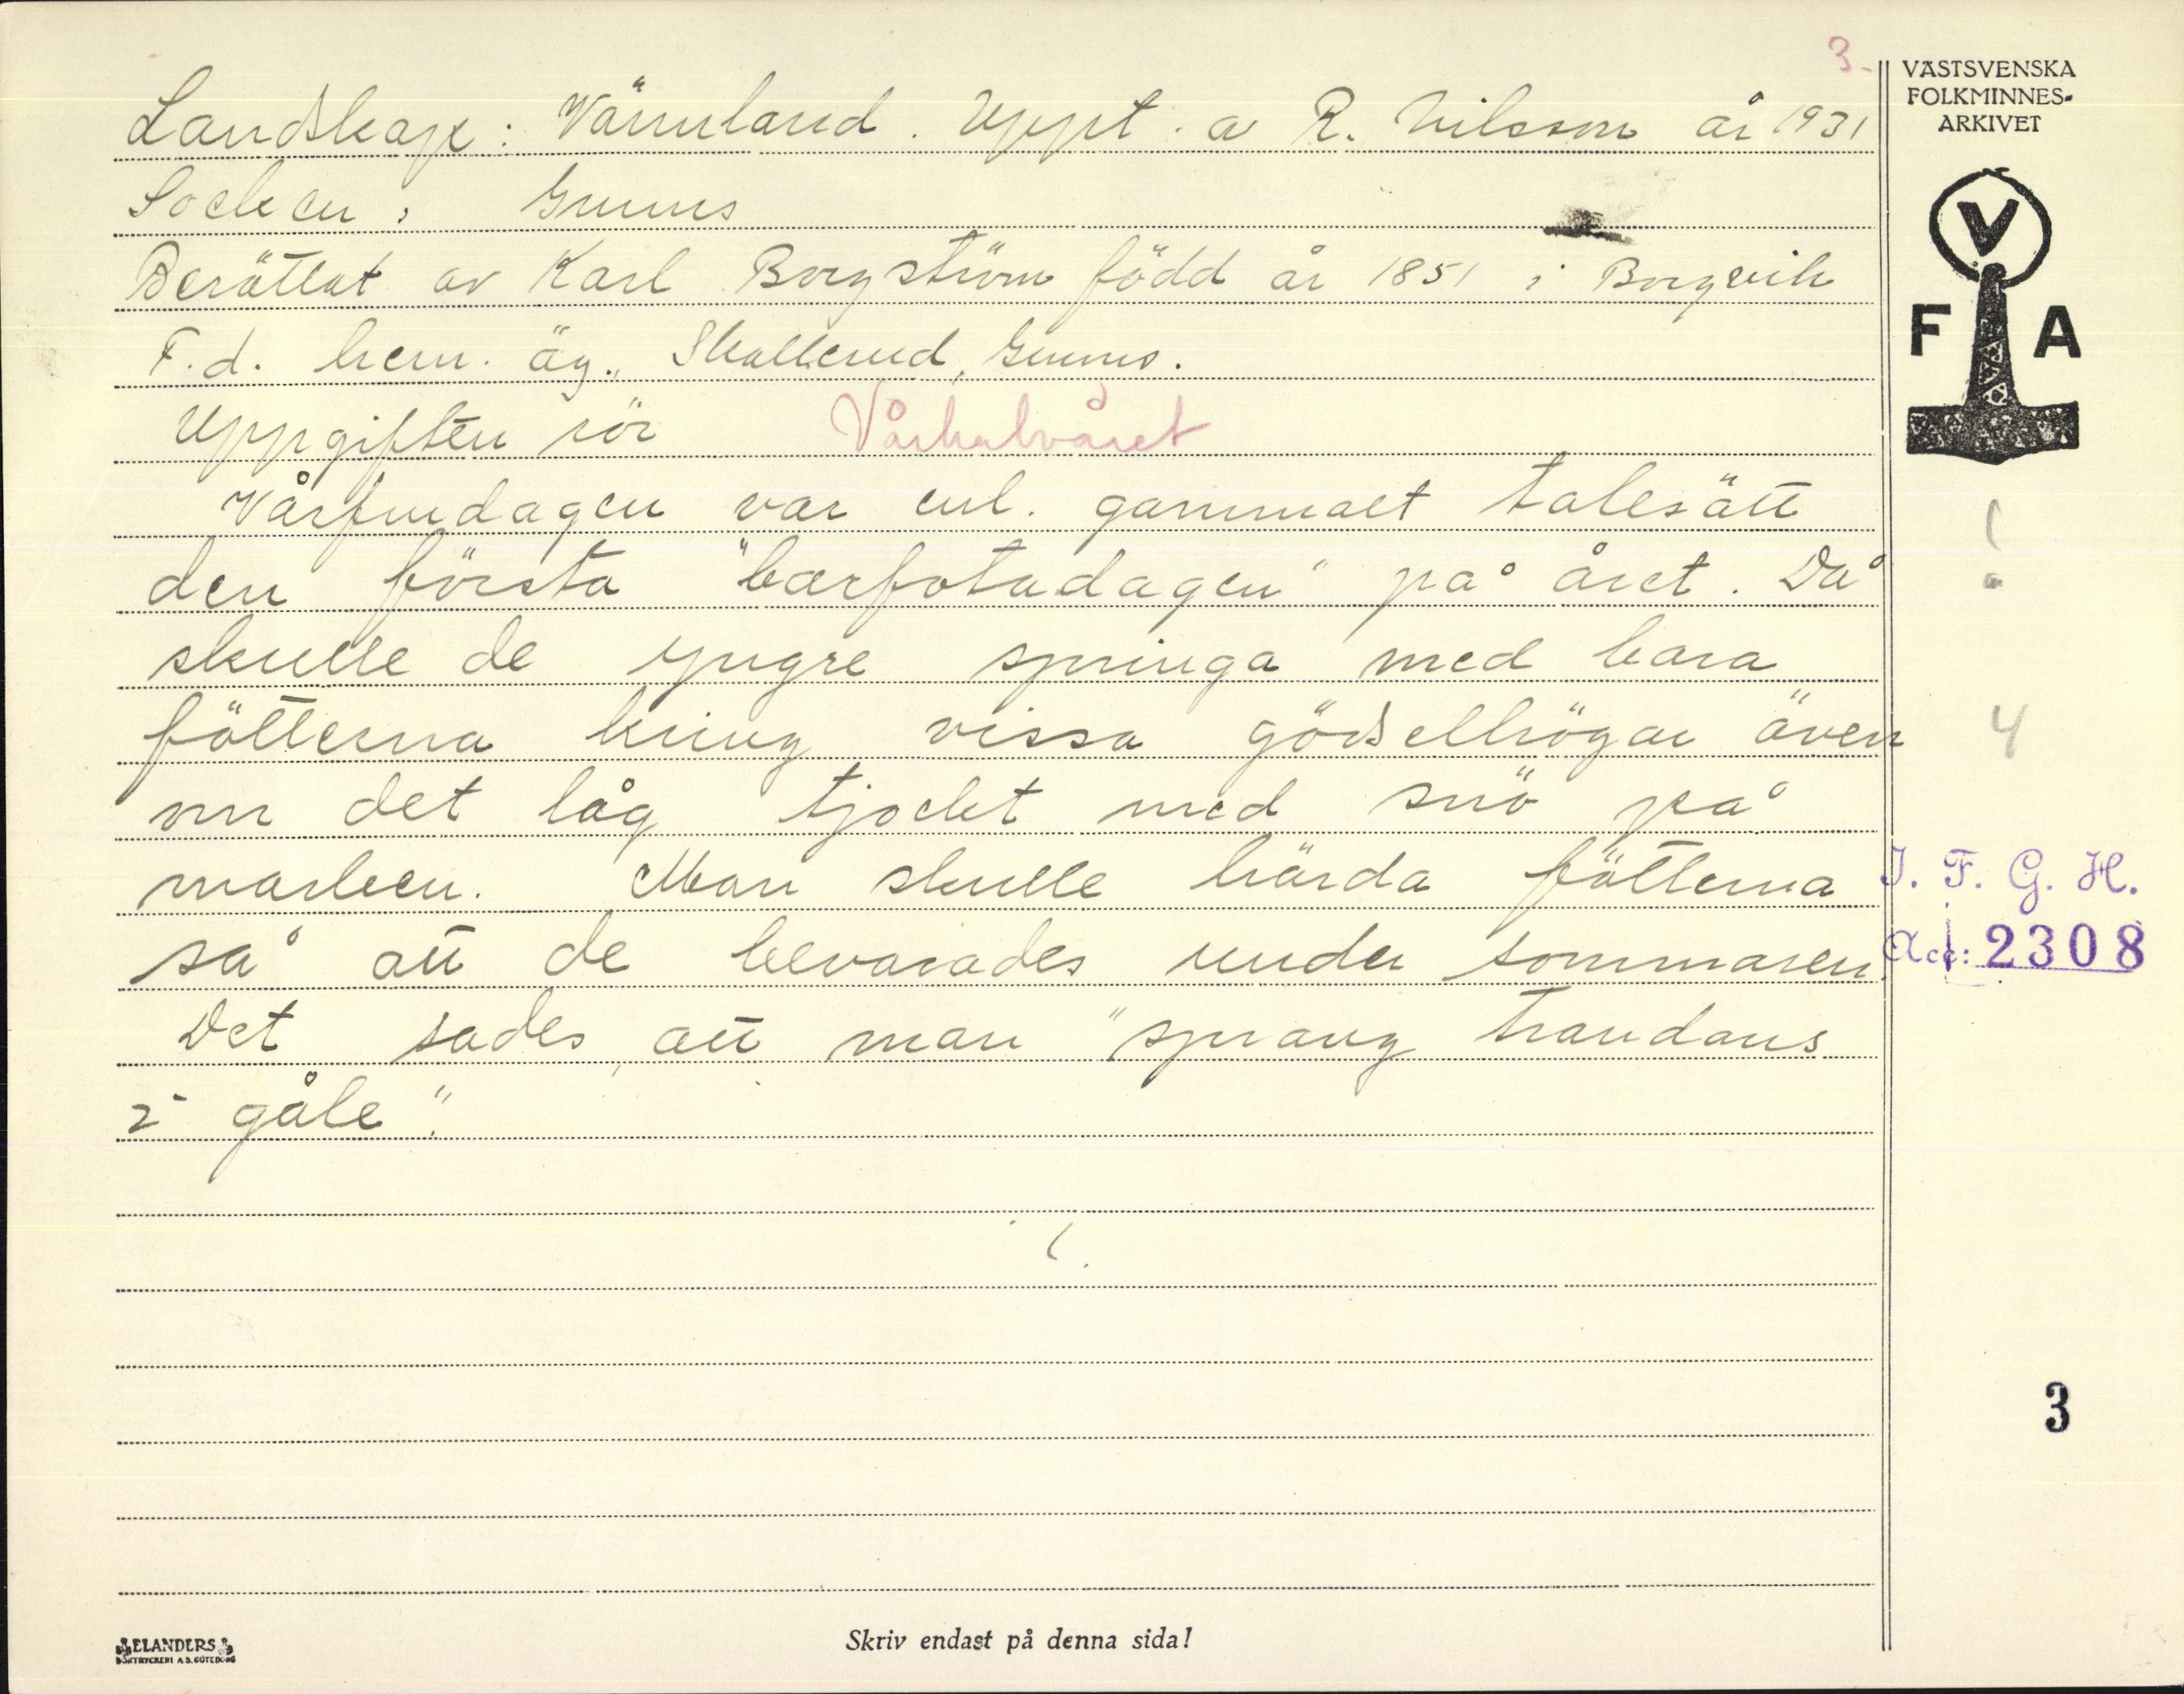 3.
Landskap: Värmland. Uppt. a R. Nilsson år 1931
Socken: Grums
Berättat av Karl Borgström född år 1851 i Borgvik
F.d. hem. äg., Skallerud, Grums.
Uppgiften rör Vårhalvåret
Vårfrudagen var enl. gammalt talesätt
den första "barfotadagen" på året. Då
skulle de yngre springa med bara
fötterna kring vissa gödselhögar även
om det låg tjockt med snö på
marken. Man skulle härda fötterna
så att de bevarades under sommaren.
Det sades, att man "sprang trandans
i gåle".
VÄSTSVENSKA
FOLKMINNES-
ARKIVET
V
F A
4
I. F. G. H.
Acc: 2308
3
ELANDERS
BOKTRYCKERI A.B. GÖTEBORG
Skriv endast på denna sida!